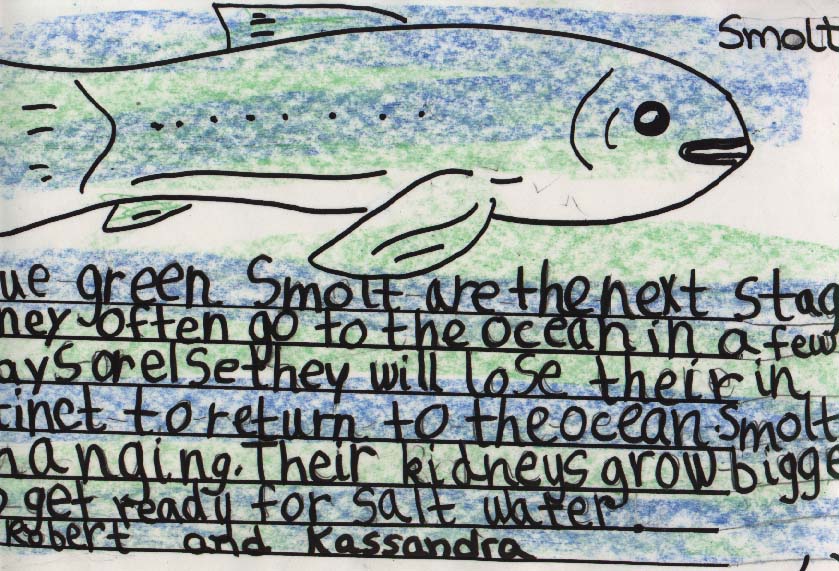 Smolt
ue green Smolt are the next stag
hey often go to the ocean in a few
ays or else they will lose their in
tinct to return to the ocean. Smolt
hanging. Their kidneys grow bigge
o get ready for salt water.
Robert and Kassandra